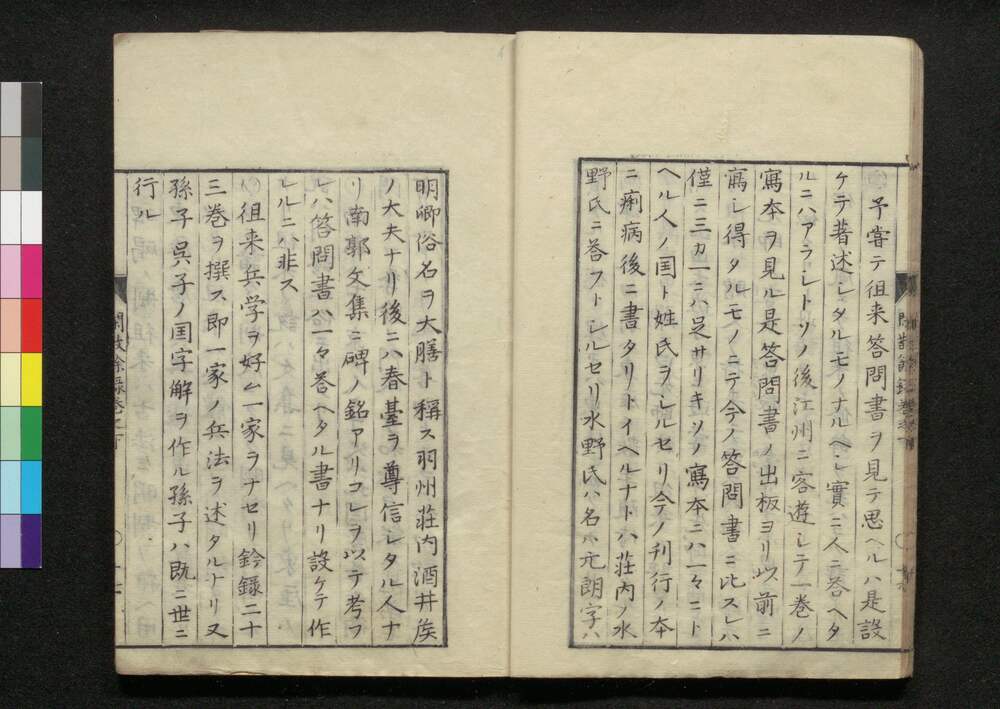 ○予嘗テ徂来答問書ヲ見テ思ヘルハ是設
ケテ著述シタルモノナルヘシ實ニ人ニ荅ヘタ
ルニハアラシトソノ後江州ニ客遊シテ一巻ノ
寫本ヲ見ル是答問書ノ出板ヨリ以前ニ
寫シ得タルモノニテ今ノ答問書ニ比スレハ
僅ニ三カ一ニハ足サリキソノ寫本ニハ一々コト
ヘル人ノ国ト姓氏ヲシルセリ今ノ刊行ノ本
ニ痢病後ニ書タリトイヘルナトハ荘内ノ水
野氏ニ荅フトシルセリ水野氏ハ名ハ元朗字ハ
明卿俗名ヲ大膳ト稱ス羽州荘内酒井矦
ノ大夫ナリ後ニハ春臺ヲ尊信シタル人ナ
リ南郭文集ニ碑ノ銘アリコレヲ以テ考フ
レハ答問書ハ一々荅ヘタル書ナリ設ケテ作
レルニハ非ス
○徂来兵学ヲ好ム一家ヲナセリ鈐録二十
三巻ヲ撰ス即一家ノ兵法ヲ述タルナリ又
孫子呉子ノ国字解ヲ作ル孫子ハ既ニ世ニ
行ル